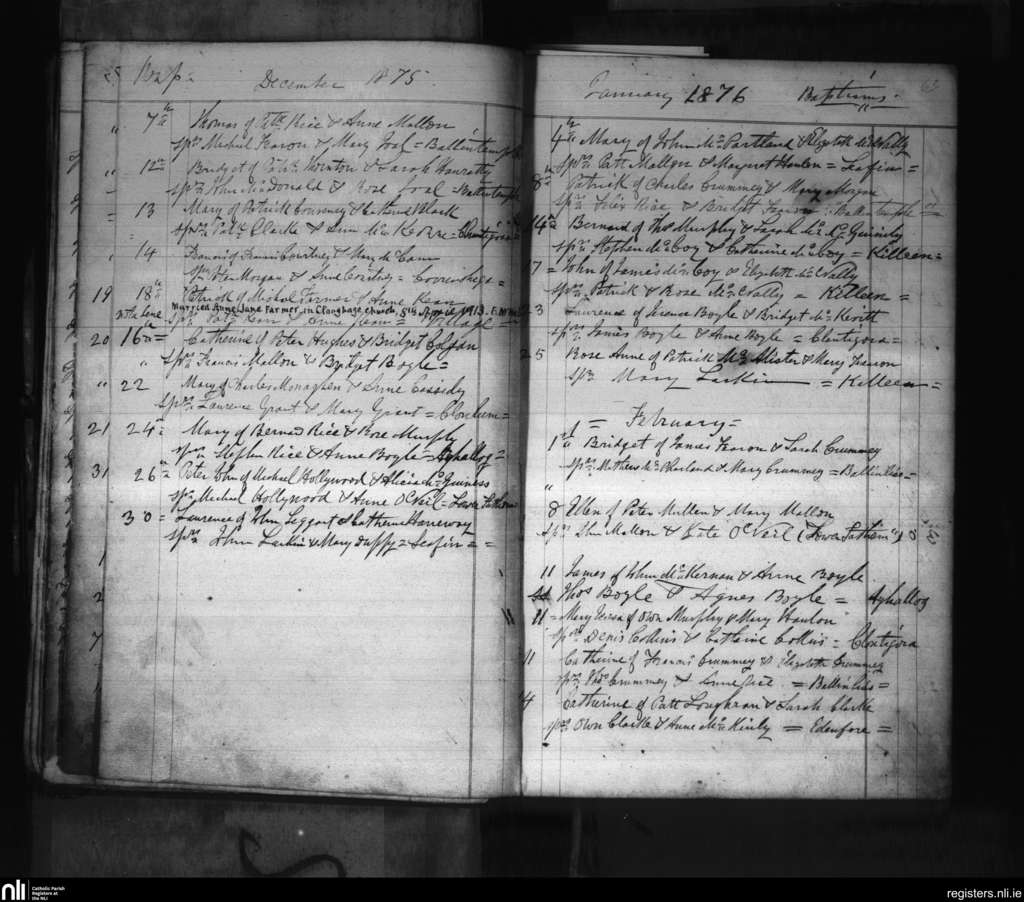 25 Bap:
December 1875
" 7th Thomas of Patk Rice & Anne Mallon
sprs Michael Fearon & Mary Foal = Ballentemple
" 12th Bridget of Patk Thornton & Sarah Hanratty
sprs John McDonald & Rose Foal Ballentemple
= 13 Mary of Patrick Courtney & Catherine Black
sprs Patk Clarke & Ann Mc = Clontigora =
" 14 Francis Courtney & Mary McCann
sprs Peter Morgan & Anne Courtney =
19 18th Patrick of Michael Farmer & Anne Kean
Married Anne Jane Farmer in Cloughoge church, 8th April 1913.
sprs & Anne = Village =
20 16th = Catherine of Peter Hughes & Bridget Colgan
" sprs Francis Mallon & Bridget Boyle =
" 22 Mary of Charles Monaghen & Anne Cassidy
sprs Laurence Grant & Mary Grant = Clonlum =
21 24th Mary of Bernard Rice & Rose Murphy
sprs Stephen Rice & Anne Boyle = Aghallog =
31 26th Peter John of Michael Hollywood & Alicia McGuiness
sprs Michael Hollywood & Anne O'Neil = Lower Fathom
30 = Laurence of John Leggart & Catherine
sprs John Larkin & Mary Duffy = Seafin = =
1
2
7
January 1876 Baptisms
4th Mary of John McPartland & Elizabeth McNally
sprs Patt Mallon & Margaret Hanlon = Seafin =
8th Patrick of Charles Crummey & Mary Magee
sprs Felix Rice & Bridget Fearon : Ballentemple =
14th Bernard of Thos Murphy & Sarah McGuinity
sprs Stephen McCoy & Catherine McCoy = Killeen =
17 = John of James McCoy & Elizabeth McNally
sprs Patrick & Rose McNally = Killeen =
23 Laurence of Terence Boyle & Bridget McKevitt
sprs James Boyle & Anne Boyle = Clontigora =
25 Rose Anne of Patrick McAlister & Mary Fearon
sprs Mary Larkin = Killeen =
= February =
1st Bridget of James Fearon & Sarah Crummey
sprs Mathew McParland & Mary Crummey = Ballinlias =
"
8 Ellen of Peter Mullen & Mary Mallon
sprs John Mallon & Kate O'Neil (Lower Fathem)
11 James of John McKernan & Anne Boyle
Thos Boyle & Agnes Boyle = Aghallog
11 = Mary of Own Murphy & Mary Hanlon
sprs Denis Collins & Catherine Collins = Clontigora
11 Catherine of Francis Crummey & Elizabeth Crummey
sprs Thos Crummey & Anne = Ballinlias =
4 Catherine of Patt Loughran & Sarah Clarke
sprs Own Clarke & Anne McKinly = Edenfore =
nli Catholic Parish
Registers at
the NLI
registers.nli.ie